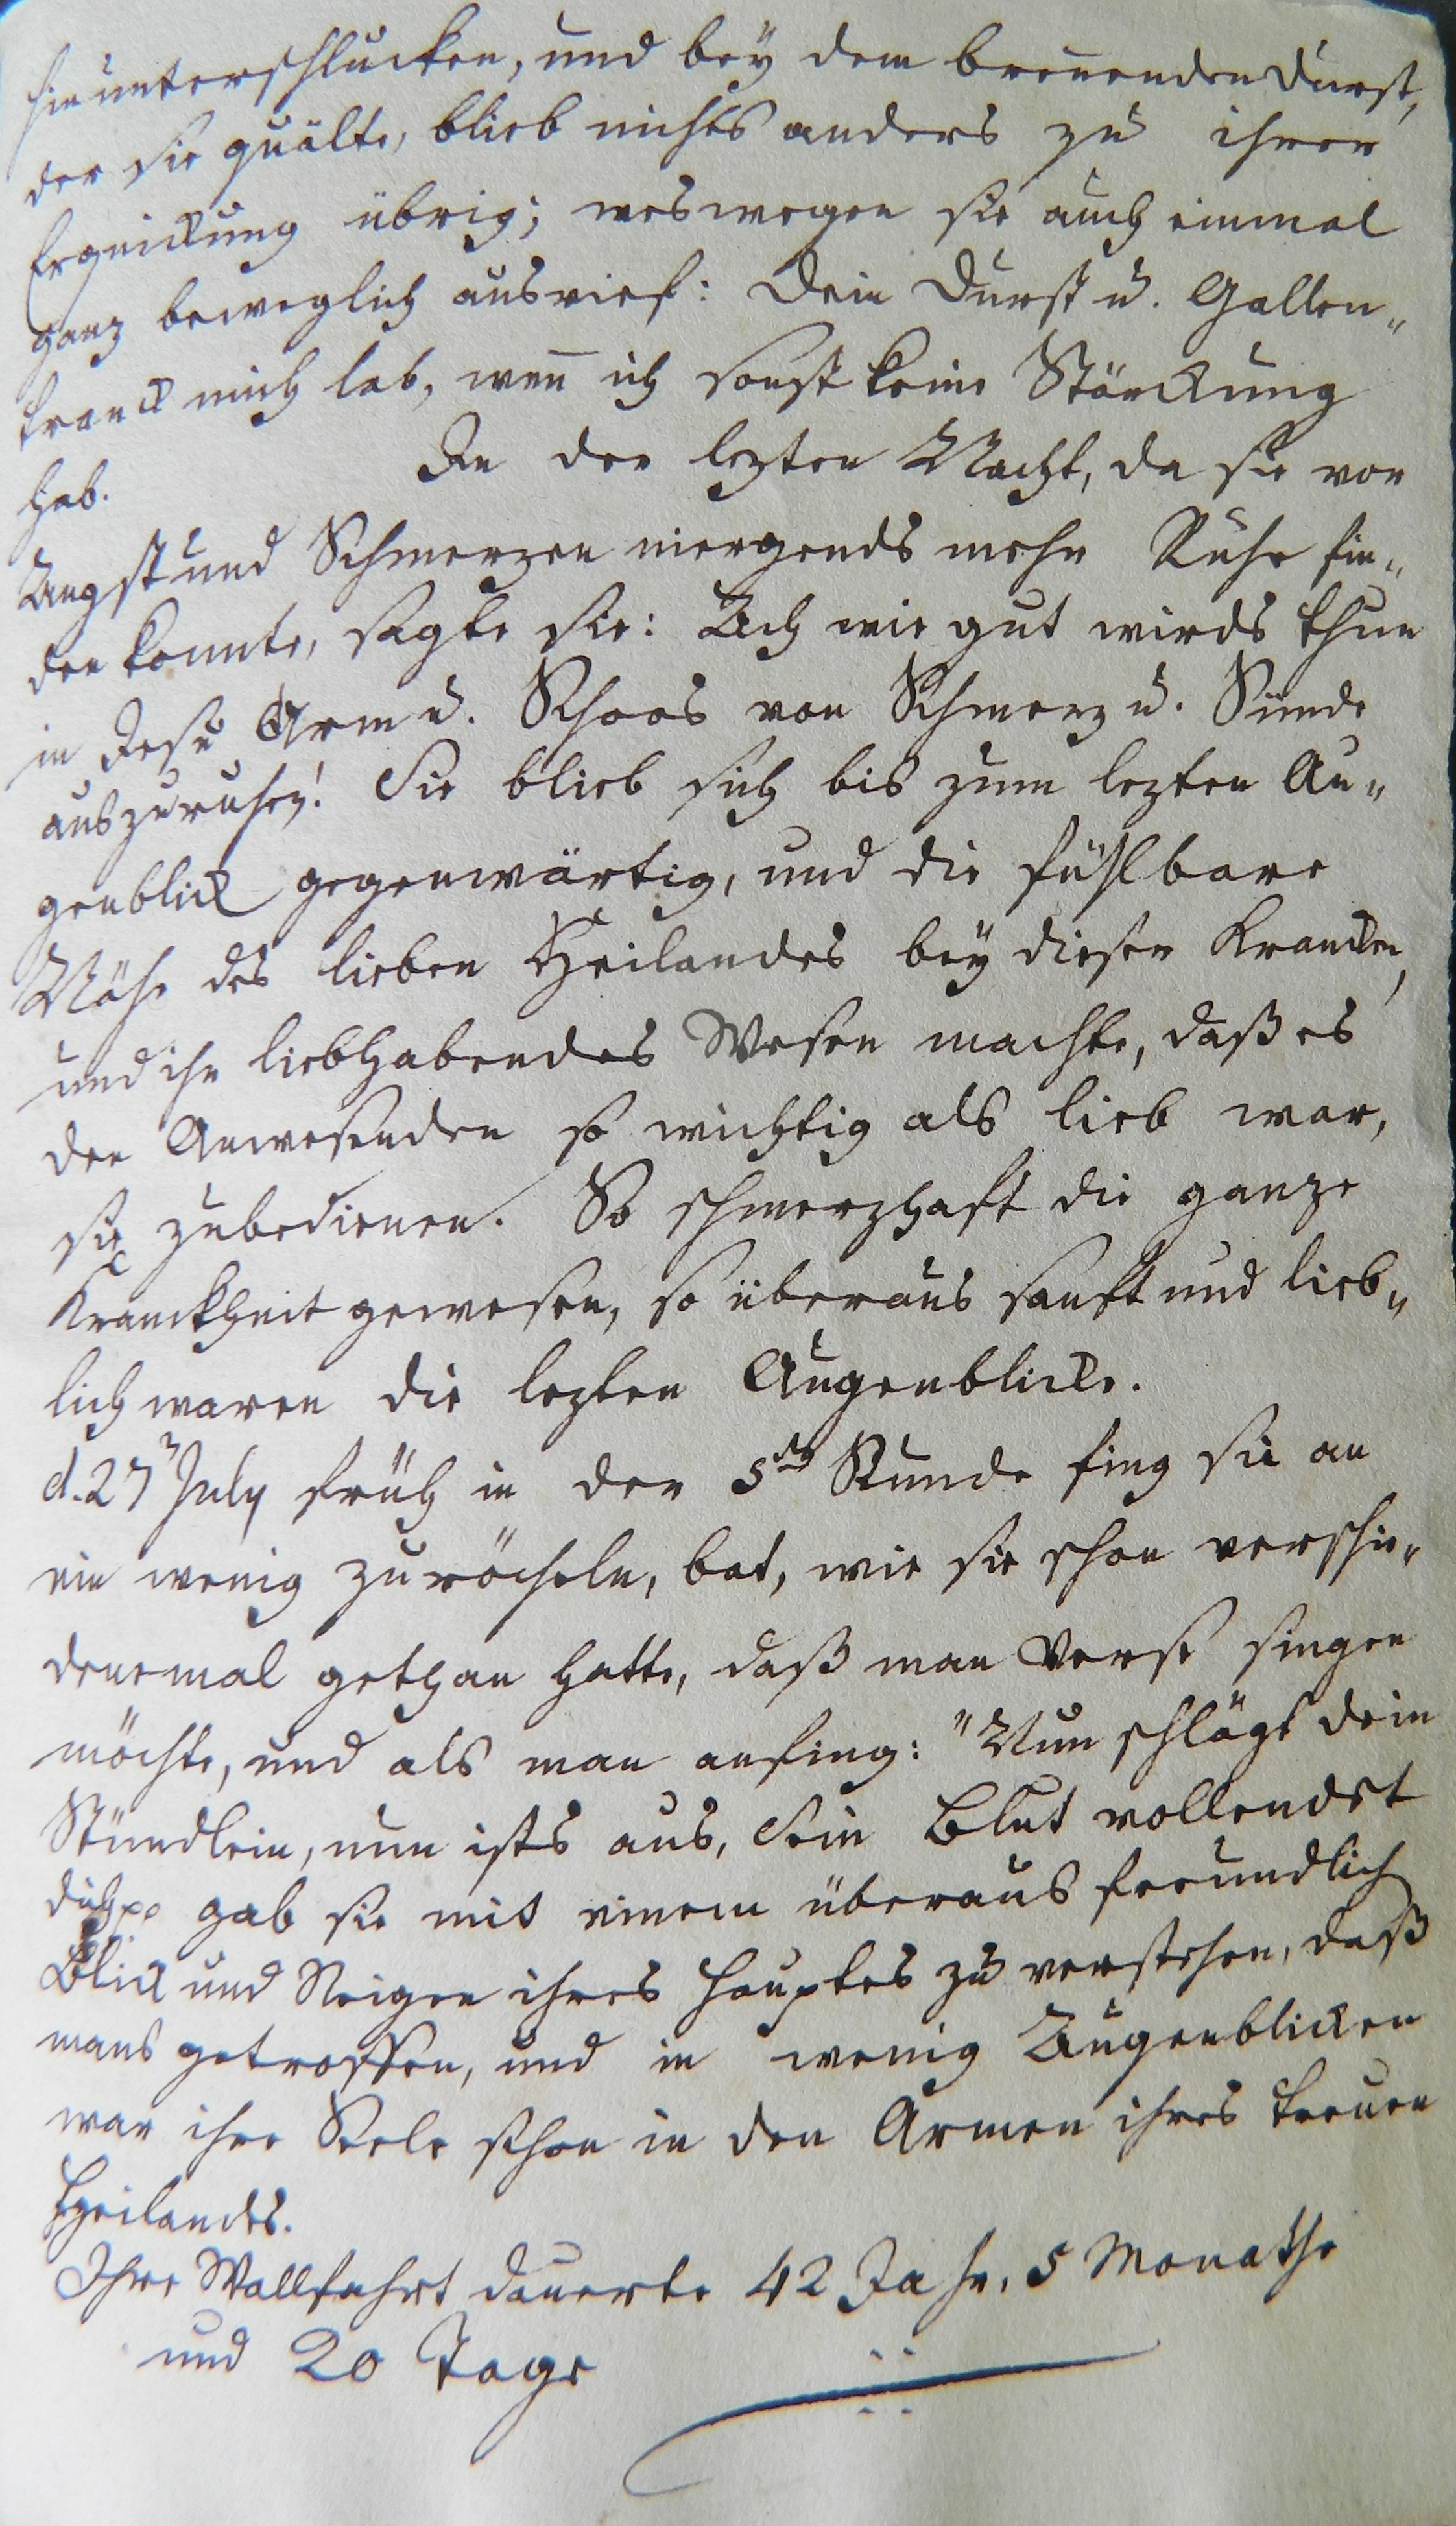 hinunterschlucken, und bey dem brenenden Durst,
der sie quälte, blieb nichts anders zu ihrer
Erquickung übrig; weswegen sie auch einmal
ganz beweglich ausrief: Dein Durst u. Gallen„
tranck mich lab, weñ ich sonst keine Stärckung
hab.
In der lezten Nacht, da sie vor
Angst und Schmerzen niergends mehr Ruhe fin„
den konnte, sagte sie: Ach wie gut wirds thun
in Jesu Arm u. Schoos von Schmerz u. Sünde
auszuruhen! Sie blieb sich bis zum lezten Au„
genblick gegenwärtig, und die fühlbare
Nähe des lieben Heilandes bey dieser Krancken,
und ihr liebhabendes Wesen machte, daß es
den Anwesenden so wichtig als lieb war,
sie zubedienen. So schmerzhaft die ganze
Kranckheit gewesen, so überaus sanft und lieb„
lich waren die lezten Augenblicke.
d. 27 July früh in der 5ten Stunde fing sie an
ein wenig zu röcheln, bat, wie sie schon verschie„
denemal gethan hatte, daß man Verse singen
möchte, und als man anfing: "Nun schlägt dein
Stündlein, nun ists aus, Sein Blut vollendet
dich pp gab sie mit einem überaus freundlich
Blick und Neigen ihres Hauptes zu verstehen, daß
mans getroffen, und in wenig Augenblicken
war ihre Seele schon in den Armen ihres treuen
Heilandes.
Ihre Wallfahrt dauerte 42 Jahr, 5 Monathe
und 20 Tage